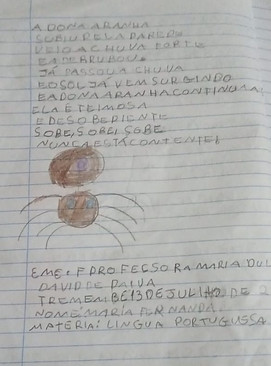 A DONA ARANHA
SUBIU PELA PAREDE
VEIO A CHUVA FORTE
E A DERRUBOU
JÁ PASSOU A CHUVA
E O SOL JÁ VEM SURGINDO
E A DONA ARANHA CONTINUA
ELA E TEIMOSA
E DESOBEDIENTE
SOBE, SOBE, SOBE
NUNCA ESTÁ CONTENTE
EMEF PROFECSORA MARIA DUL
DAVID DE PAIVA
TREMEMBÉ 13 DE JULHO DE 2
NOME: MARIA FERNANDA
MATERIA: LINGUA PORTUGUSSA